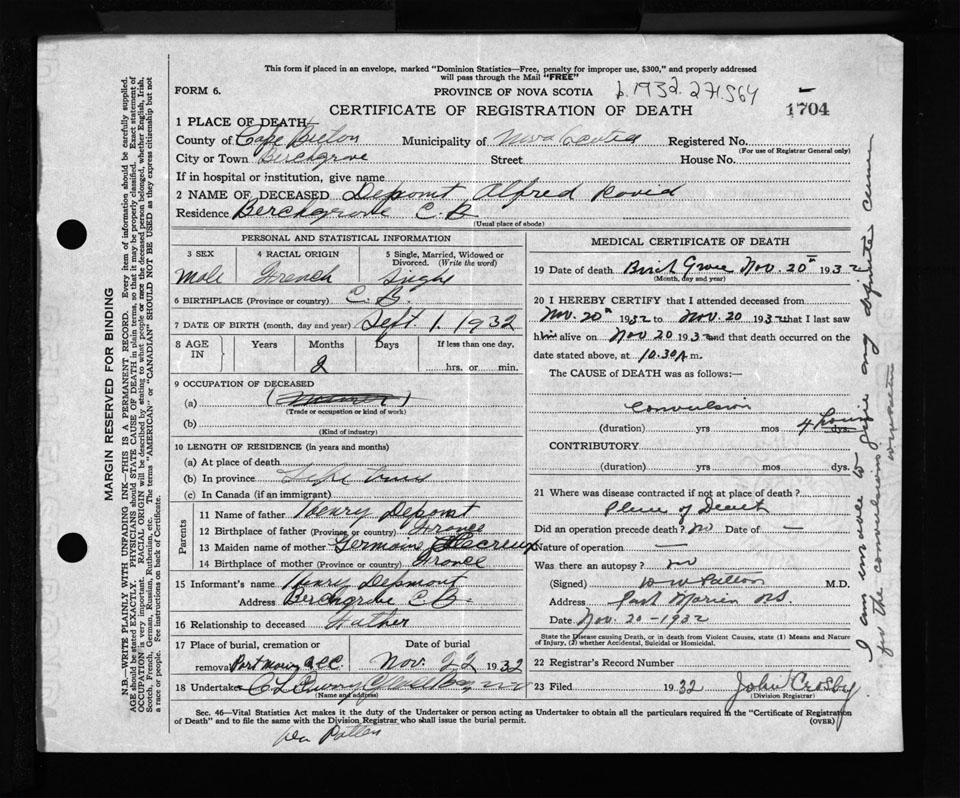 This form if placed in an envelope, marked "Dominion Statistics—Free, penalty for improper use, $300," and properly addressed
will pass through the Mail "FREE"
FORM 6.
PROVINCE OF NOVA SCOTIA
1932. 271564
CERTIFICATE OF REGISTRATION OF DEATH
1704
1 PLACE OF DEATH
County of Cape Breton Municipality of Nova Scotia Registered No.
(For use of Registrar General only)
City or Town Birchgrove Street House No.
If in hospital or institution, give name
2 NAME OF DECEASED Depomt Alfred David
Residence Berchgrove C.B
(Usual place of abode)
PERSONAL AND STATISTICAL INFORMATION
3 SEX 4 RACIAL ORIGIN 5 Single, Married, Widowed or
Divorced. (Write the word)
Male French Single
6 BIRTHPLACE (Province or country) C.B.
7 DATE OF BIRTH (month, day and year) Sept. 1. 1932
8 AGE IN Years Months Days If less than one day,
2 hrs. or min.
9 OCCUPATION OF DECEASED
(a)
(Trade or occupation or kind of work)
(b)
(Kind of industry)
10 LENGTH OF RESIDENCE (in years and months)
(a) At place of death
(b) In province Life time
(c) In Canada (if an immigrant)
Parents
11 Name of father Henry Depomt
12 Birthplace of father (Province or country) France
13 Maiden name of mother Germaine Lecreux
14 Birthplace of mother (Province or country) France
15 Informant's name Henry Depmont
Address Berchgrove C.B.
16 Relationship to deceased Father
17 Place of burial, cremation or Date of burial
removal Port Morien R.C.C. Nov. 22 1932
18 Undertaker
(Name and address)
MEDICAL CERTIFICATE OF DEATH
19 Date of death Birch Grove Nov. 20th 1932
(Month, day and year)
20 I HEREBY CERTIFY that I attended deceased from
Nov. 20th 1932 to Nov. 20 1932 that I last saw
him alive on Nov 20 1932 and that death occurred on the
date stated above, at 10.30 A.m.
The CAUSE of DEATH was as follows:—
Convulsion
(duration) yrs mos 4 hours dys.
CONTRIBUTORY
(duration) yrs. mos. dys.
21 Where was disease contracted if not at place of death?
Place of Death
Did an operation precede death? No Date of —
Nature of operation —
Was there an autopsy? no
(Signed) W Patton M.D.
Address Port Morien NS.
Date Nov. 20 - 1932
State the Disease causing Death, or in death from Violent Causes, state (1) Means and Nature
of Injury, (2) whether Accidental, Suicidal or Homicidal.
22 Registrar's Record Number
23 Filed 1932 John Crosby
(Division Registrar)
Sec. 46—Vital Statistics Act makes it the duty of the Undertaker or person acting as Undertaker to obtain all the particulars required in the "Certificate of Registration
of Death" and to file the same with the Division Registrar who shall issue the burial permit.
(OVER)
Patten
MARGIN RESERVED FOR BINDING
N.B.—WRITE PLAINLY WITH UNFADING INK—THIS IS A PERMANENT RECORD. Every item of information should be carefully supplied.
AGE should be stated EXACTLY. PHYSICIANS should STATE CAUSE OF DEATH in plain terms, so that it may be properly classified. Exact statement of
OCCUPATION is very important. RACIAL ORIGIN will be described by stating to what people or race the deceased person belonged, whether English, Irish,
Scotch, French, German, Russian, Ruthenian, etc. The terms "AMERICAN" or "CANADIAN" SHOULD NOT BE USED as they express citizenship but not
a race or people. See instructions on back of Certificate.
I am unable to give any definite cause
for the convulsions